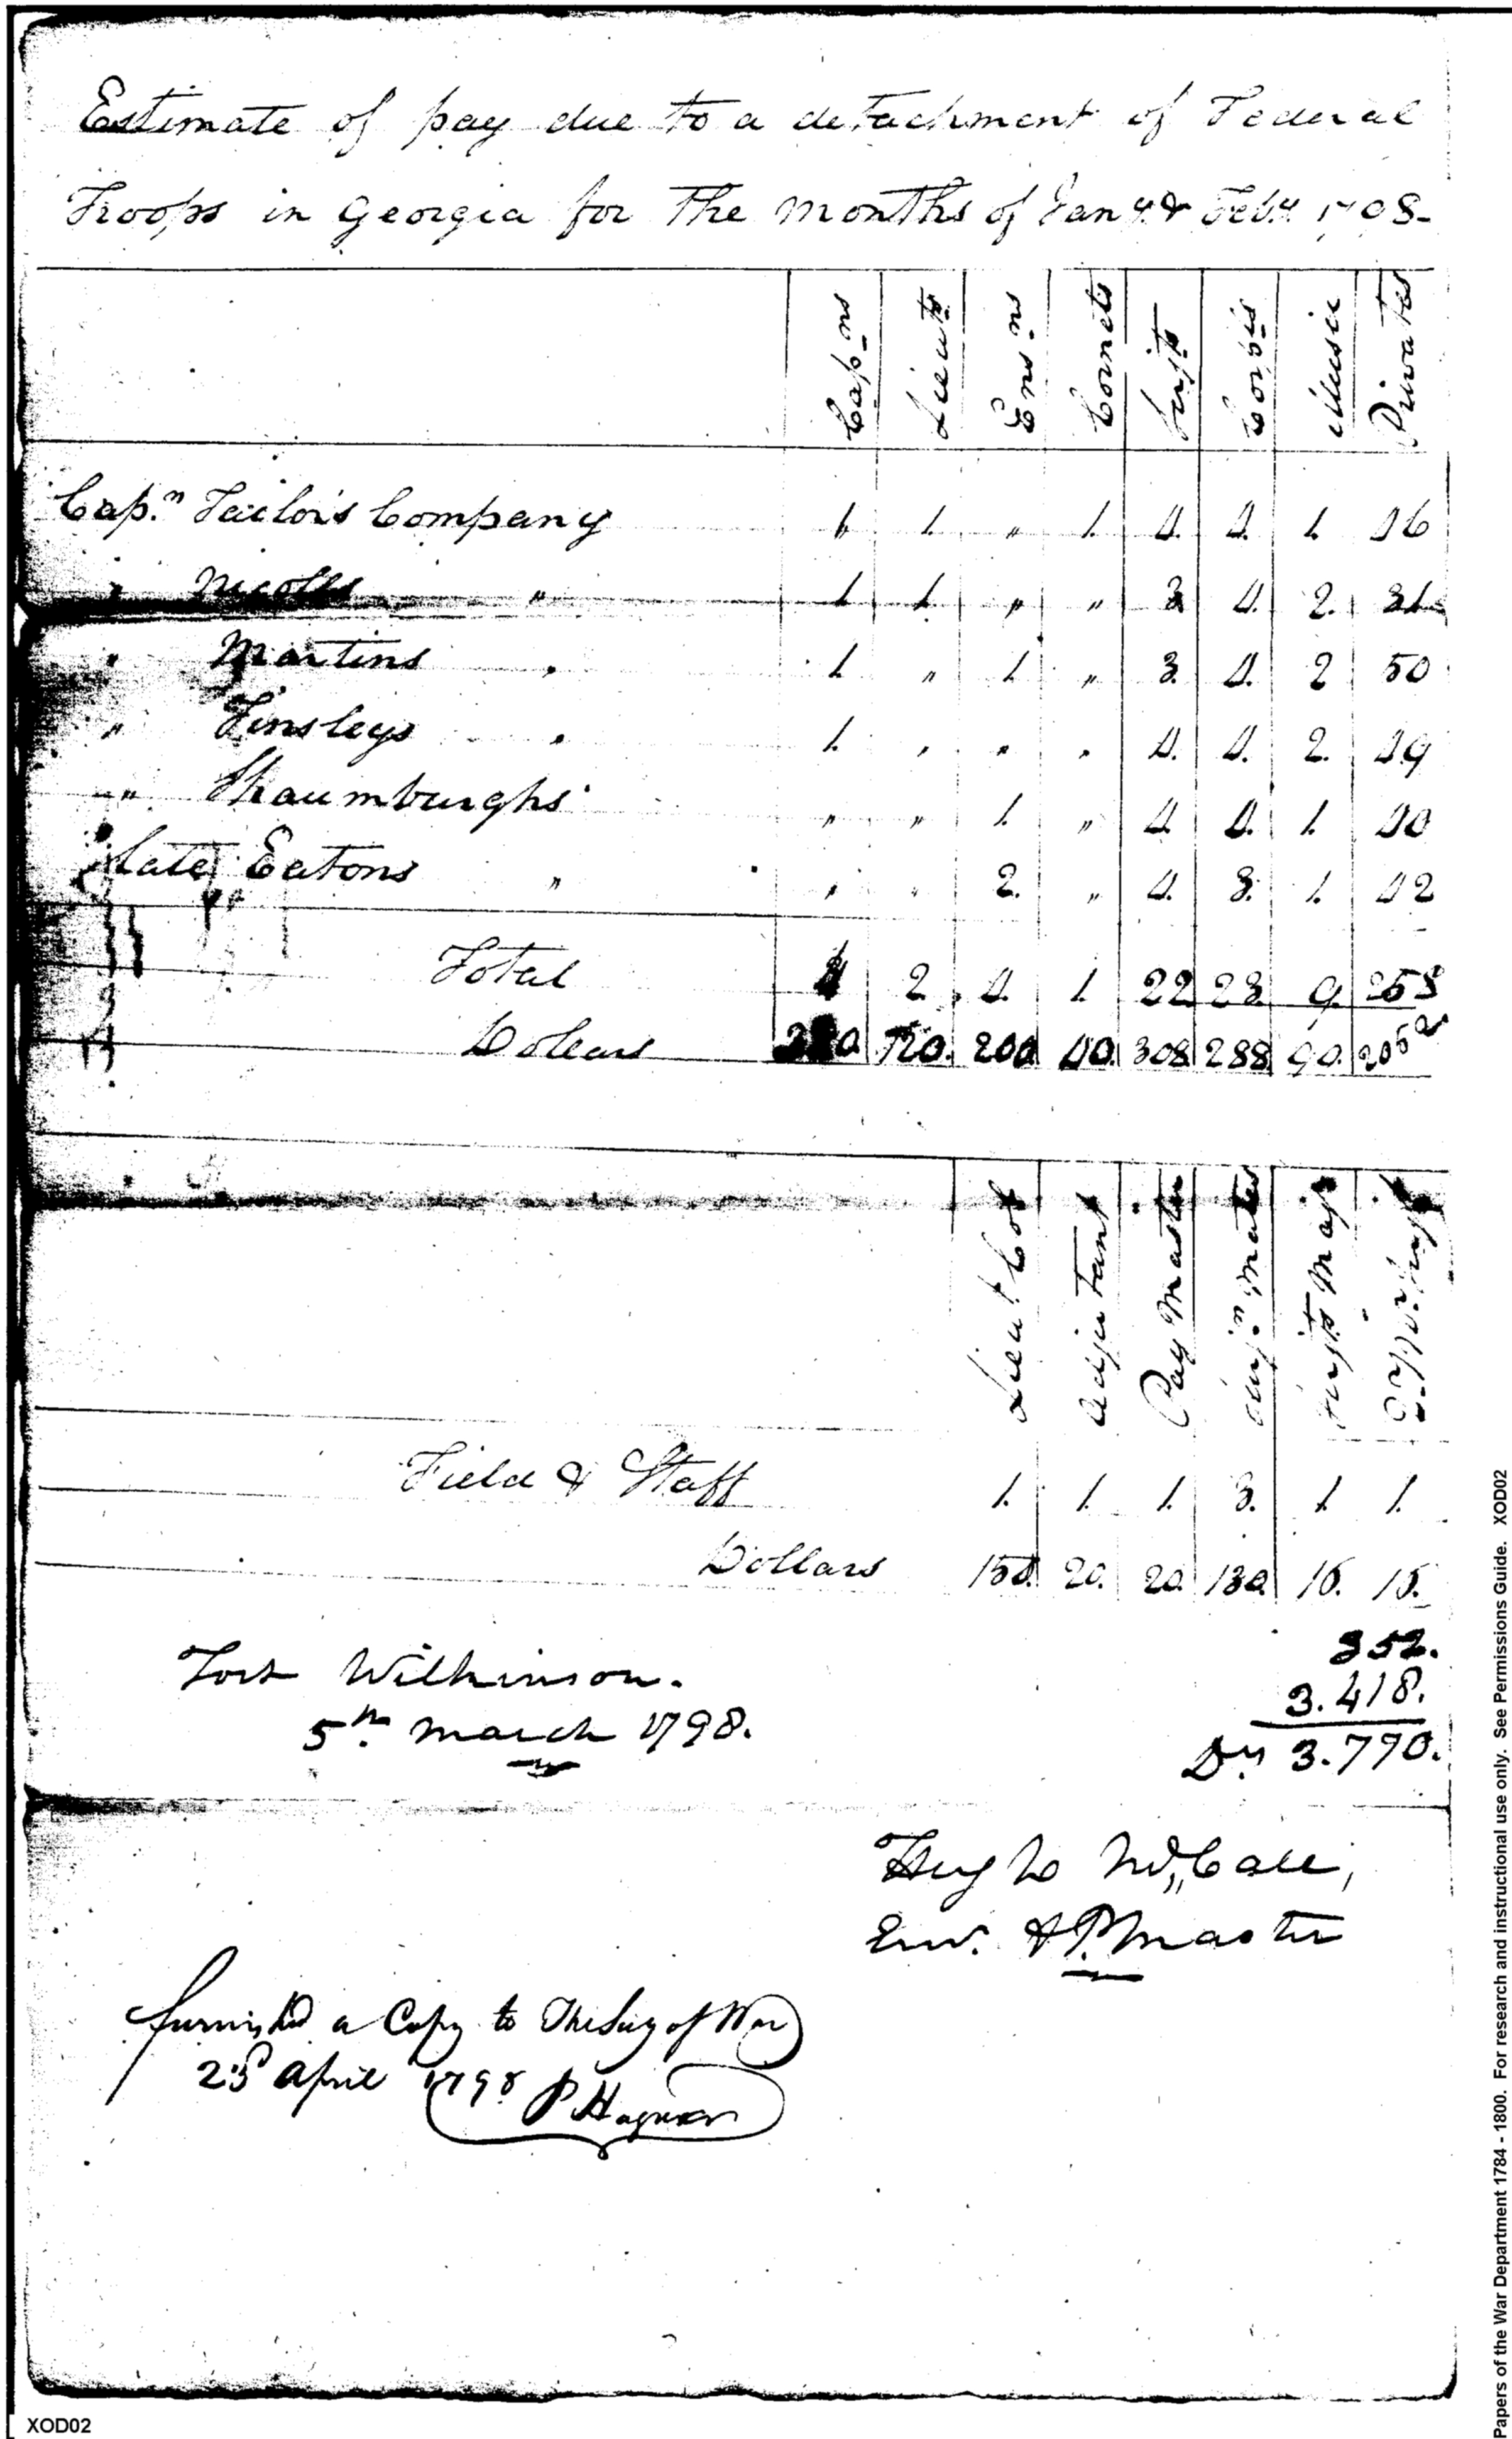 Estimate of pay due to a detachment of Federal
Troops in Georgia for the months of Jany. & Feby. 1798-
Cap.ns Lieuts Ens.ns Cornets Serjts Corp.ls Music Privates
Cap.n Tailors Company 1 1 " 1. 4. 4. 1. 46
" Nicolls " 1 1 " " 3 4. 2. 31
" Martins " 1 " 1 " 3. 4. 2 50
" Tinsleys " 1. " " " 4. 4. 2. 49
" Shaumburghs " " 1. " 4. 4. 1. 40
Late Eatons " " " 2. " 4. 3. 1. 42
Total 4 2. 4. 1. 22 23. 9. 258
Dolears 120. 200. 40. 308 288 90. 2052
Lieut Col Adjutant Pay Master Surj.n Mates Serjt. Maj Q.M. Serjt
Field & Staff 1. 1. 1. 3. 1 1.
Dollars 150. 20. 20. 130. 16. 16.
352.
3.418.
Drs 3.770.
Fort Wilkinson.
5th. March 1798.
Hugh McCall,
Ens. & P. Master
furnished a Copy to The Secy of War
23d April 1798 P Hagner
XOD02
Papers of the War Department 1784 - 1800. For research and instructional use only. See Permissions Guide. XOD02